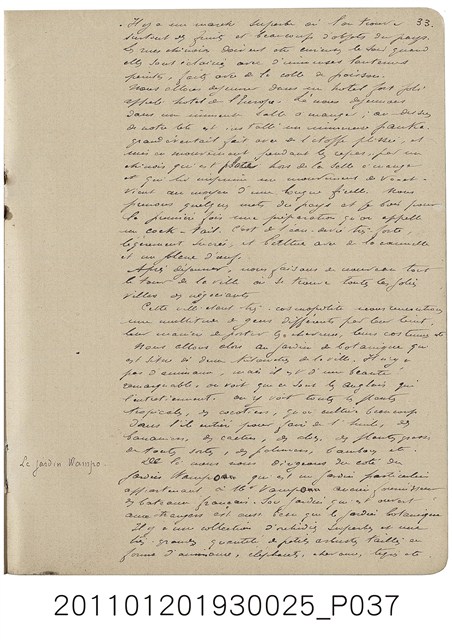 33.
. Il y a un marché superbe où l'on trouve
surtout des fruits et beaucoup d'objets du pays.
Les rues chinoises doivent être curieuses le soir quand
elles sont éclairées avec d'immenses lanternes
peintes, faites avec de la colle de poisson.
Nous allons déjeuner dans un hotel fort joli
appelé hotel de l'Europe. Là nous déjeunons
dans une immense salle à manger; au dessus
de notre tête est installé un immense panka.
grand éventail fait avec de l'étoffe plissée, et
mis en mouvement pendant les repas, par un
chinois qui est placé hors de la salle à manger
et qui lui imprime un mouvement de va et
vient au moyen d'une longue ficelle. Nous
prenons quelques mets du pays et je bois pour
la première fois une préparation qu'on appelle
un cock-tail. C'est de l'eau de vie très forte,
légèrement sucrée, et battue avec de la cannelle
et un blanc d'œuf.
Après déjeuner, nous faisons de nouveau tout
le tour de la ville où se trouve toutes les jolies
villas des négociants.
Cette ville étant très cosmopolite nous rencontrons
une multitude de gens différents par leur teint,
leur manière de porter les cheveux, leurs costumes etc
Nous allons alors au jardin de botanique qui
est situé à deux kilomètres de la ville. Il n'y a
pas d'animaux, mais il est d'une beauté
remarquable, on voit que ce sont les anglais qui
l'entretiennent. on y voit toutes les plantes
tropicales, des cocotiers, qu'on cultive beaucoup
dans l'île entière pour faire de l'huile, des
bananiers, des cactus, des aloès, des plantes grasses,
de toutes sortes, des palmiers, bambous etc.
De là nous nous dirigeons du côté du
Le jardin Wampo.
jardin Wampoa qui est un jardin particulier
appartenant à Mr Wampoa ancien fournisseur
de bateaux français. Son jardin qui est ouvert
aux français est aussi bien que le jardin botanique
Il y a une collection d'orchidées superbes et une
très grande quantité de petits arbustes taillés en
forme d'animaux, éléphants, chevaux, tigres etc.
201101201930025_P037